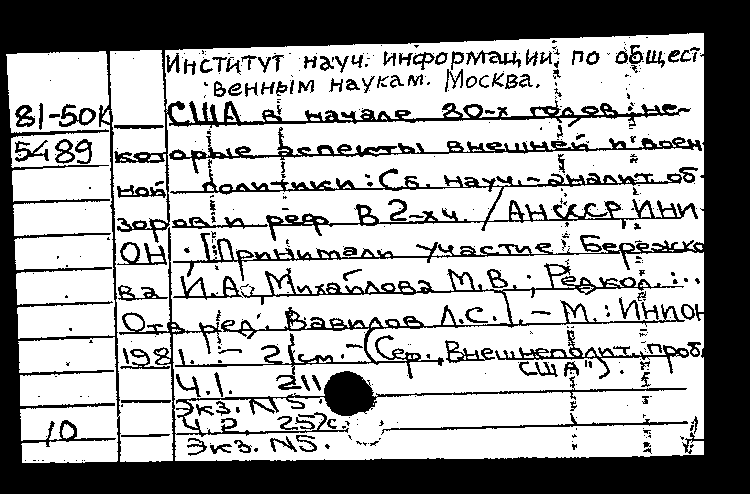 Институт науч. информации по общест-
венным наукам. Москва.
81-50К США в начале 80-х годов: не-
5489 которые аспекты внешней и воен-
ной политики: Сб. науч.-аналит. об-
зоров и реф. В 2-х ч. /АН СССР, ИНИ-
ОН ; [Принимали участие Бережко
ва И.А., Михайлова М.В. ; Редкол.:..
Отв. ред. Вавилов Л.С.]. - М.: ИНИОН
1981. - 21 см. - (Сер. "Внешнеполит. пробл.
США").
Ч.1. 211
Экз. N5.
10 Ч.2. 257с.
Экз. N5.